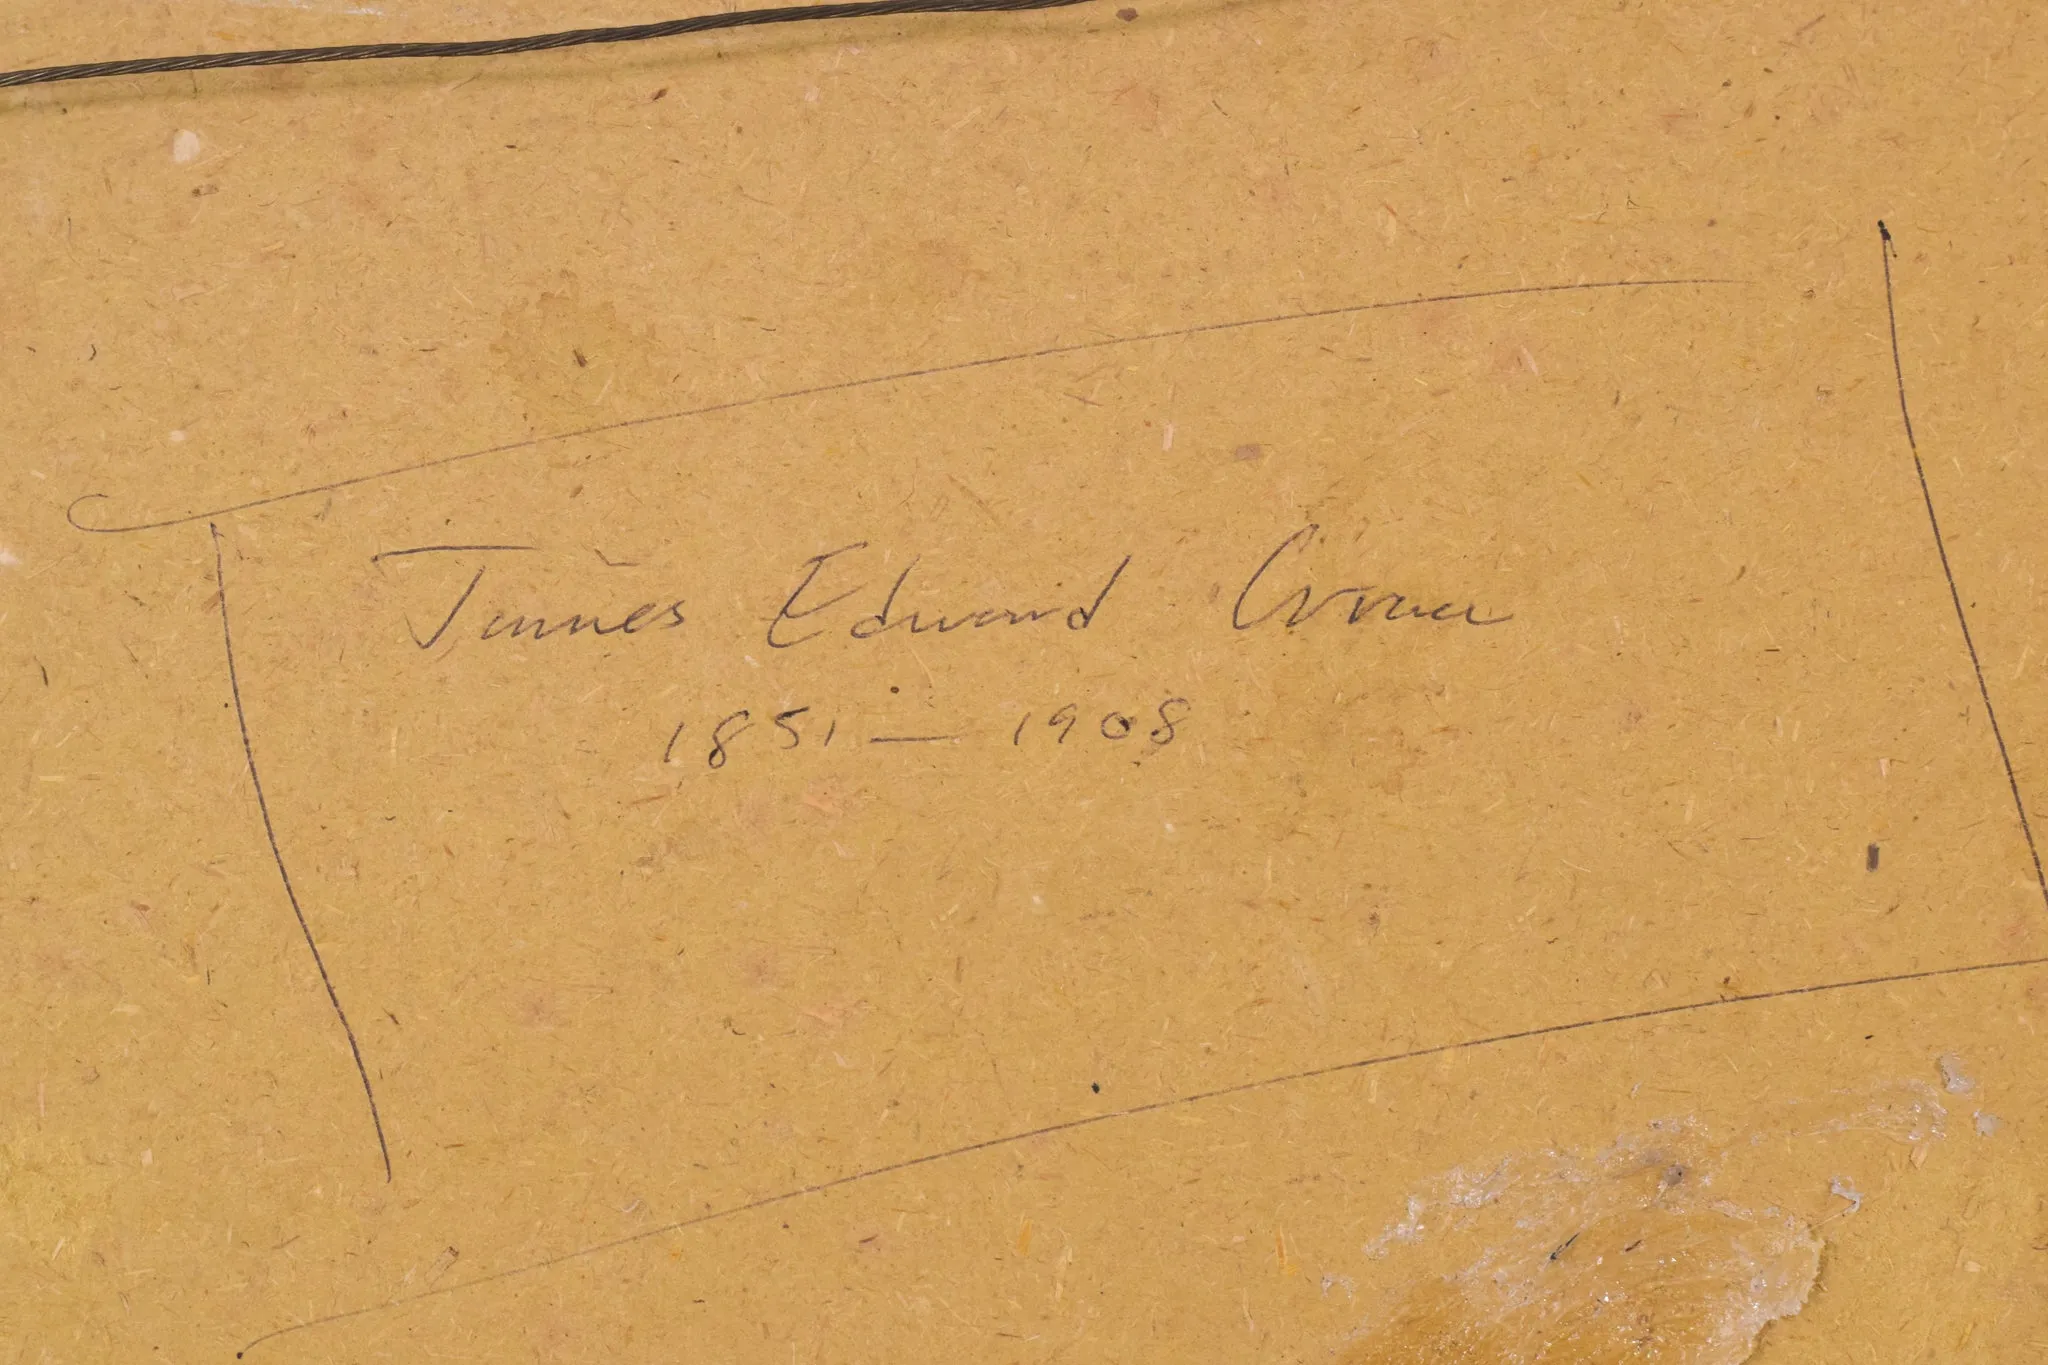 James Edward Grace
1851 — 1908